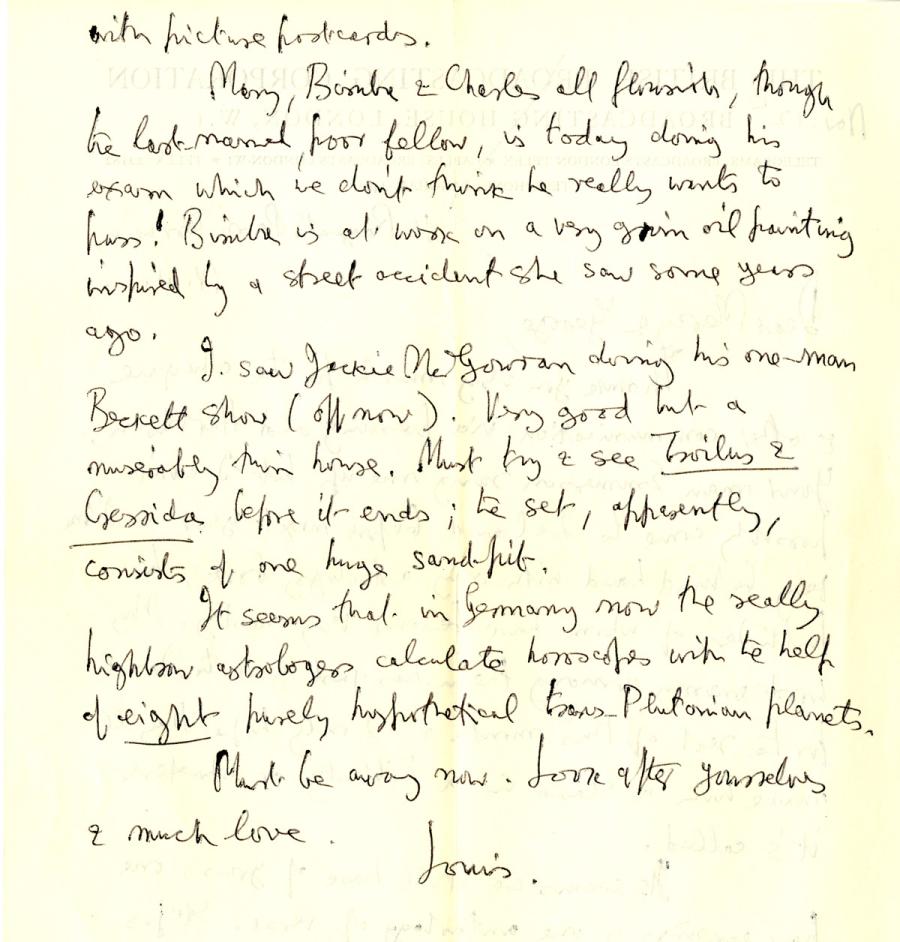 with picture postcards.
Mary, Bimba & Charles all flourish, though
the last-named, poor fellow, is today doing his
exam which we don't think he really wants to
pass! Bimba is at work on a very grim oil painting
inspired by a street accident she saw some years
ago.
I saw Jackie McGowran doing his one-man
Beckett show (off now). Very good but a
miserably thin house. Must try & see Troilus &
Cressida before it ends; the set, apparently,
consists of one huge sand-pit.
It seems that in Germany now the really
highbrow astrologers calculate horoscopes with the help
of eight purely hypothetical trans-Plutonian planets.
Must be away now. Look after yourselves
& much love.
Louis.
THE BRITISH BROADCASTING CORPORATION
BROADCASTING HOUSE, LONDON, W.1